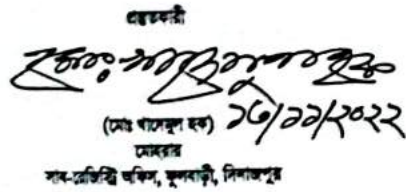 প্রস্তুতকারী
১৬/১১/২০২২
(মোঃ খাদেমুল হক)
মোহরার
সাব-রেজিস্ট্রি অফিস, ফুলবাড়ী, দিনাজপুর